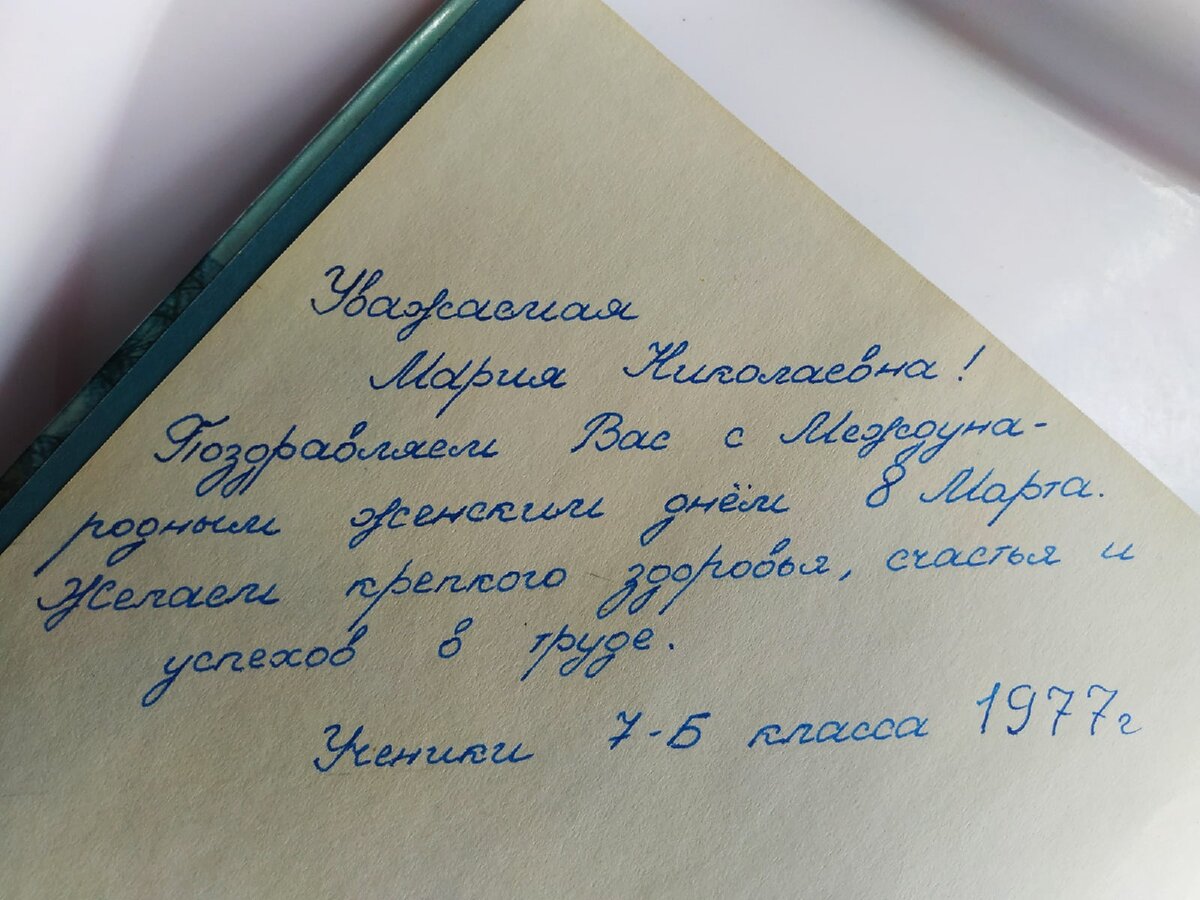 Уважаемая
Мария Николаевна!
Поздравляем Вас с Междуна-
родным женским днём 8 Марта.
Желаем крепкого здоровья, счастья и
успехов в труде.
Ученики 7-Б класса 1977г